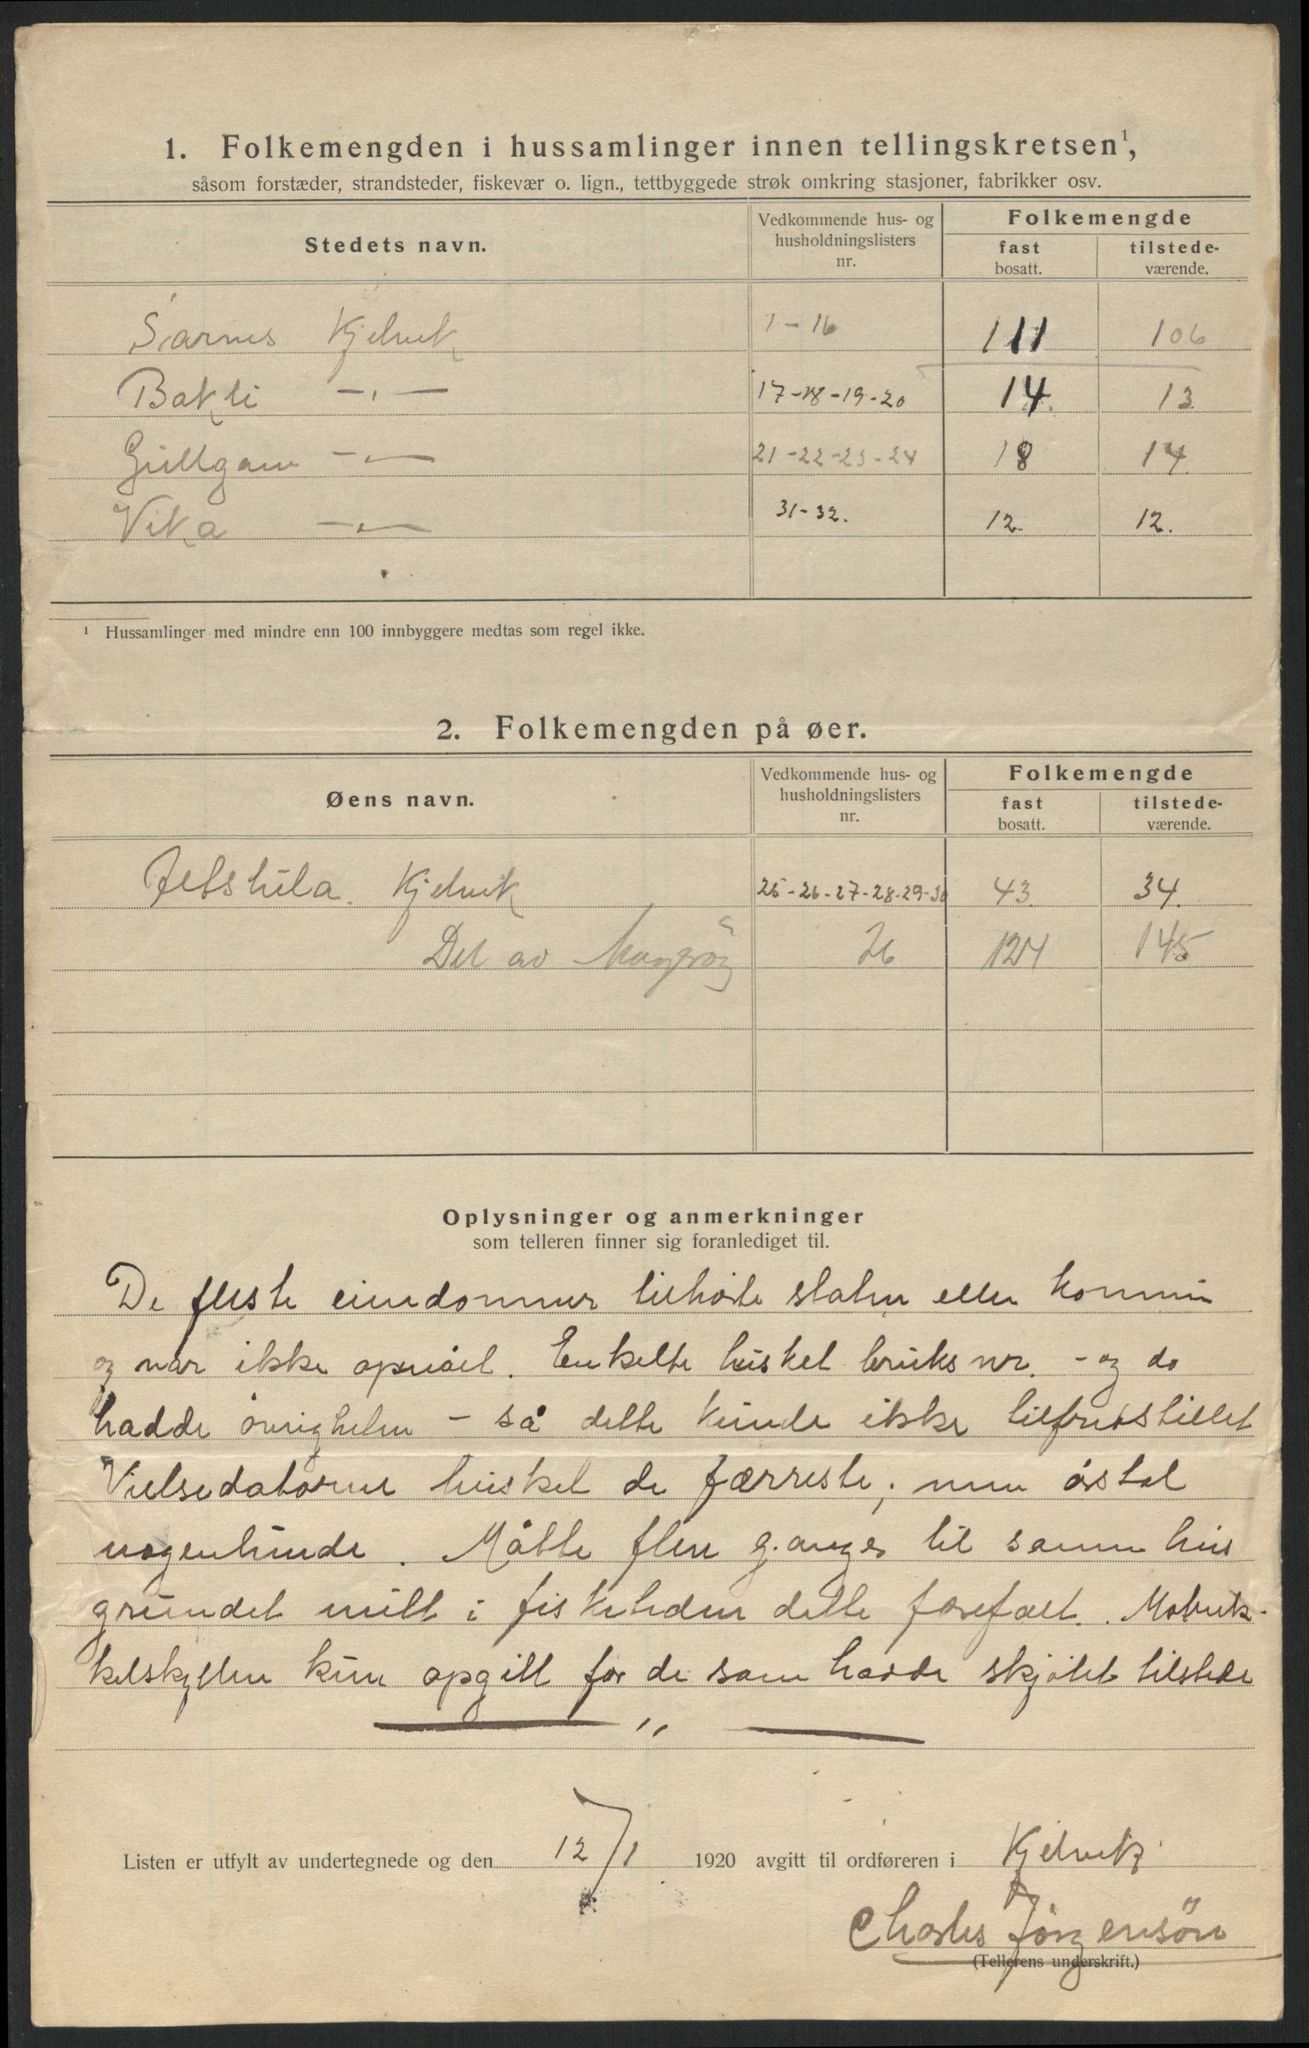 1. Folkemengden i hussamlinger innen tellingskretsen¹,
såsom forstæder, strandsteder, fiskevær o. lign., tettbyggede strøk omkring stasjoner, fabrikker osv.
Stedets navn. Vedkommende hus- og husholdningslisters nr. Folkemengde
fast bosatt. tilstede-værende.
Sarnes Kjelvik 1-16 111 106
Bakli -„- 17-18-19-20 14 13
Gullgam -„- 21-22-23-24 18 14
Vika -„- 31-32. 12. 12.
¹ Hussamlinger med mindre enn 100 innbyggere medtas som regel ikke.
2. Folkemengden på øer.
Øens navn. Vedkommende hus- og husholdningslisters nr. Folkemengde
fast bosatt. tilstede-værende.
Kjelvik 25-26-27-28-29-30 43. 34.
Del av Magerøy 26 145
Oplysninger og anmerkninger
som telleren finner sig foranlediget til.
De fleste eiendommer tilhørte staten eller kommun
og var ikke Enkelte husket bruksnr. - og da
hadde - så dette kunde ikke tilfredstillet
Vielsedatoerne husket de færreste; men årstal
nogenlunde. Måtte flere ganger til samme hus
grundet midt i fisketiden dette forefalt. Matrik-
kelskylden kun opgitt for de som hadde skjøtet tilstede
„
Listen er utfylt av undertegnede og den 12/1 1920 avgitt til ordføreren i Kjelvik
Charles Jörgensön
(Tellerens underskrift.)